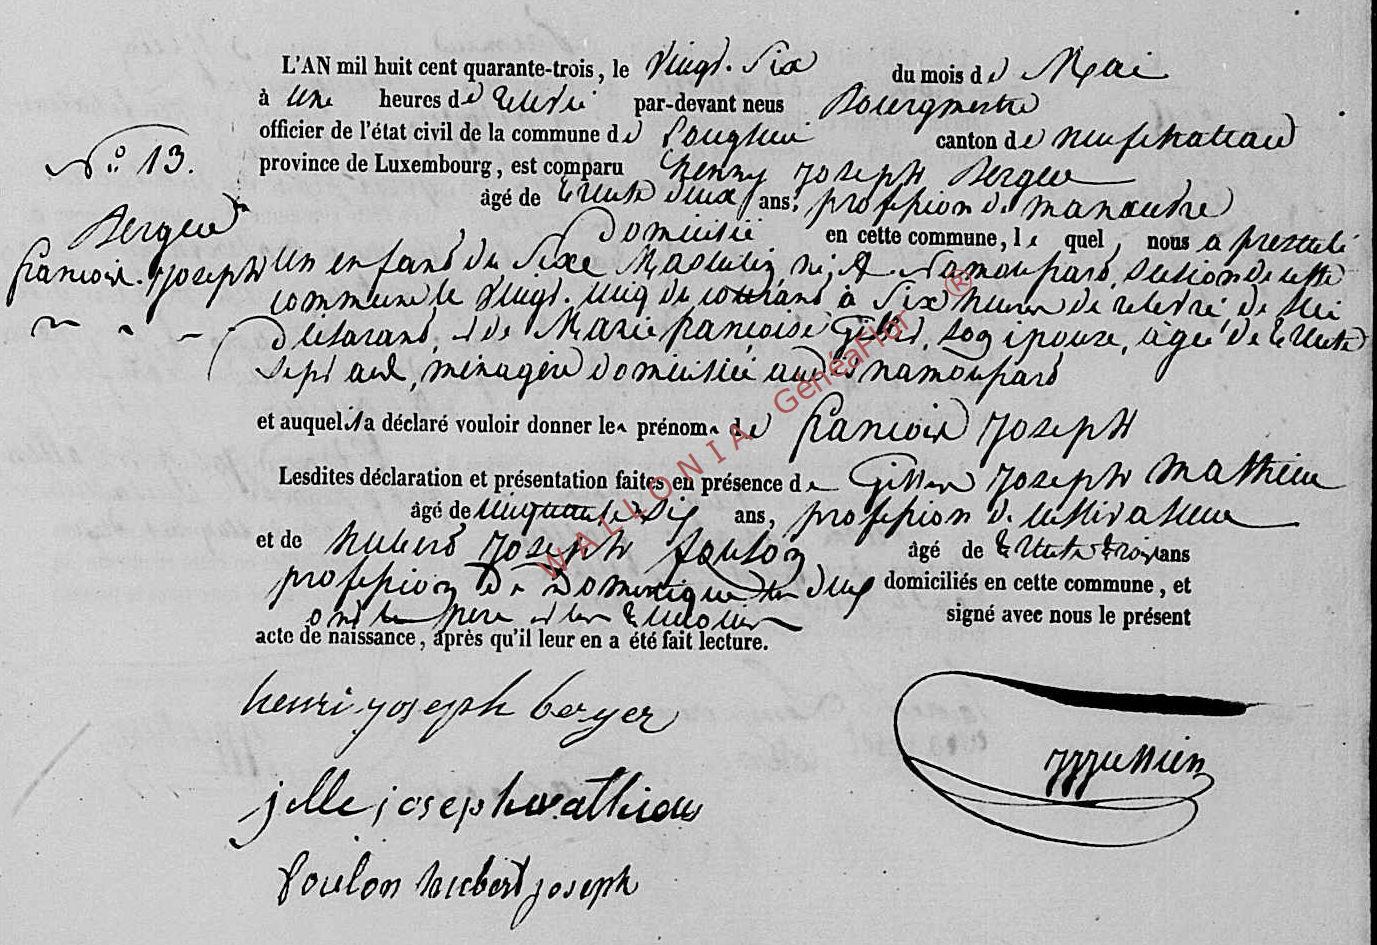 L'AN mil huit cent quarante-trois, le vingt-six du mois de Mai
à une heures de relevé par-devant nous Bourgmestre
officier de l'état civil de la commune de Longlier canton de neufchateau
province de Luxembourg, est comparu henry joseph Berger
âgé de trente deux ans, profession de manœuvre
domicilié en cette commune, lequel, nous a presenté
un enfant du sexe Masculin, né à Namoussart, section de cette
commune le vingt-cinq du courant à six heures de relevé, de lui
déclarant, et de Marie françoise Gillet, son épouse, agée de trente
sept ans, ménagère domiciliée audit namoussart
et auquel il a déclaré vouloir donner les prénoms de françois joseph
Lesdites déclaration et présentation faites en présence de Gilles joseph Mathieu
âgé de cinquante six ans, profession de cultivateur
et de hubert joseph foulon âgé de trente trois ans
profession de domestique domiciliés en cette commune, et
ont le père et les témoins signé avec nous le présent
acte de naissance, après qu'il leur en a été fait lecture.
N° 13.
Berger
françois-joseph
henri joseph berger
jille joseph mathieu
foulon hubert joseph
WALLONIA GeneaFlor ®